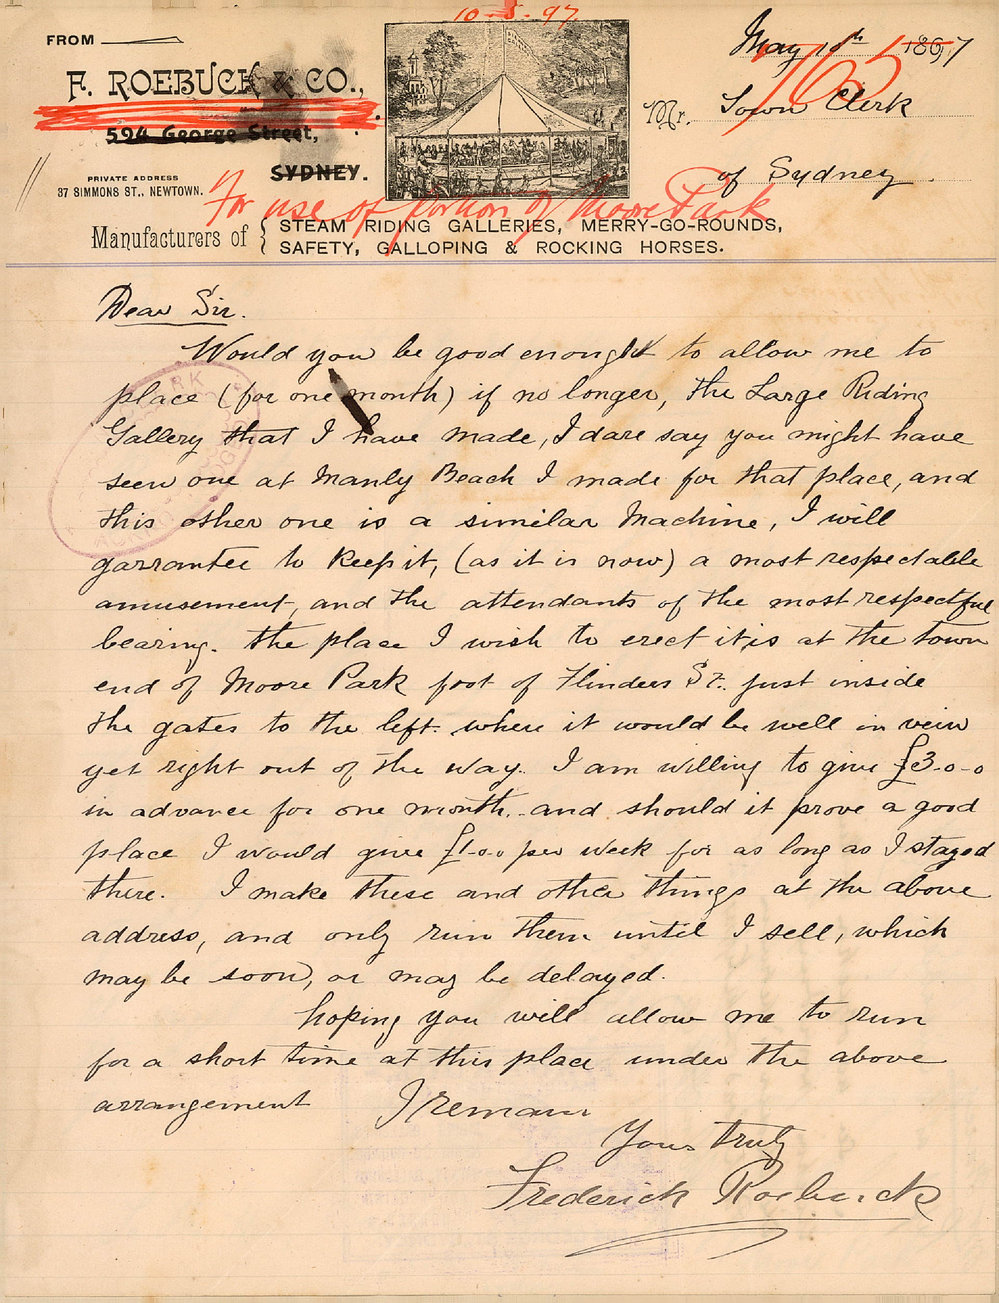 10-5-97
FROM
F. ROEBUCK & CO.,
594 George Street,
SYDNEY.
PRIVATE ADDRESS
37 SIMMONS ST., NEWTOWN.
May 10th 1897
765
Mr. Town Clerk
of Sydney
For use of portion of Moore Park
Manufacturers of { STEAM RIDING GALLERIES, MERRY-GO-ROUNDS,
SAFETY, GALLOPING & ROCKING HORSES.
Dear Sir.
Would you be good enough to allow me to
place (for one month) if no longer, the Large Riding
Gallery that I have made, I dare say you might have
seen one at Manly Beach I made for that place, and
this other one is a similar Machine, I will
garrantee to keep it, (as it is now) a most respectable
amusement, and the attendants of the most respectful
bearing. the place I wish to erect it is at the town
end of Moore Park foot of Flinders St. just inside
the gates to the left. where it would be well in veiw
yet right out of the way. I am willing to give £3-0-0
in advance for one month. and should it prove a good
place I would give £1-0-0 per week for as long as I stayed
there. I make these and other things at the above
address, and only run them until I sell, which
may be soon, or may be delayed.
hoping you will allow me to run
for a short time at this place under the above
arrangement I remain
Yours truly
Frederick Roebuck